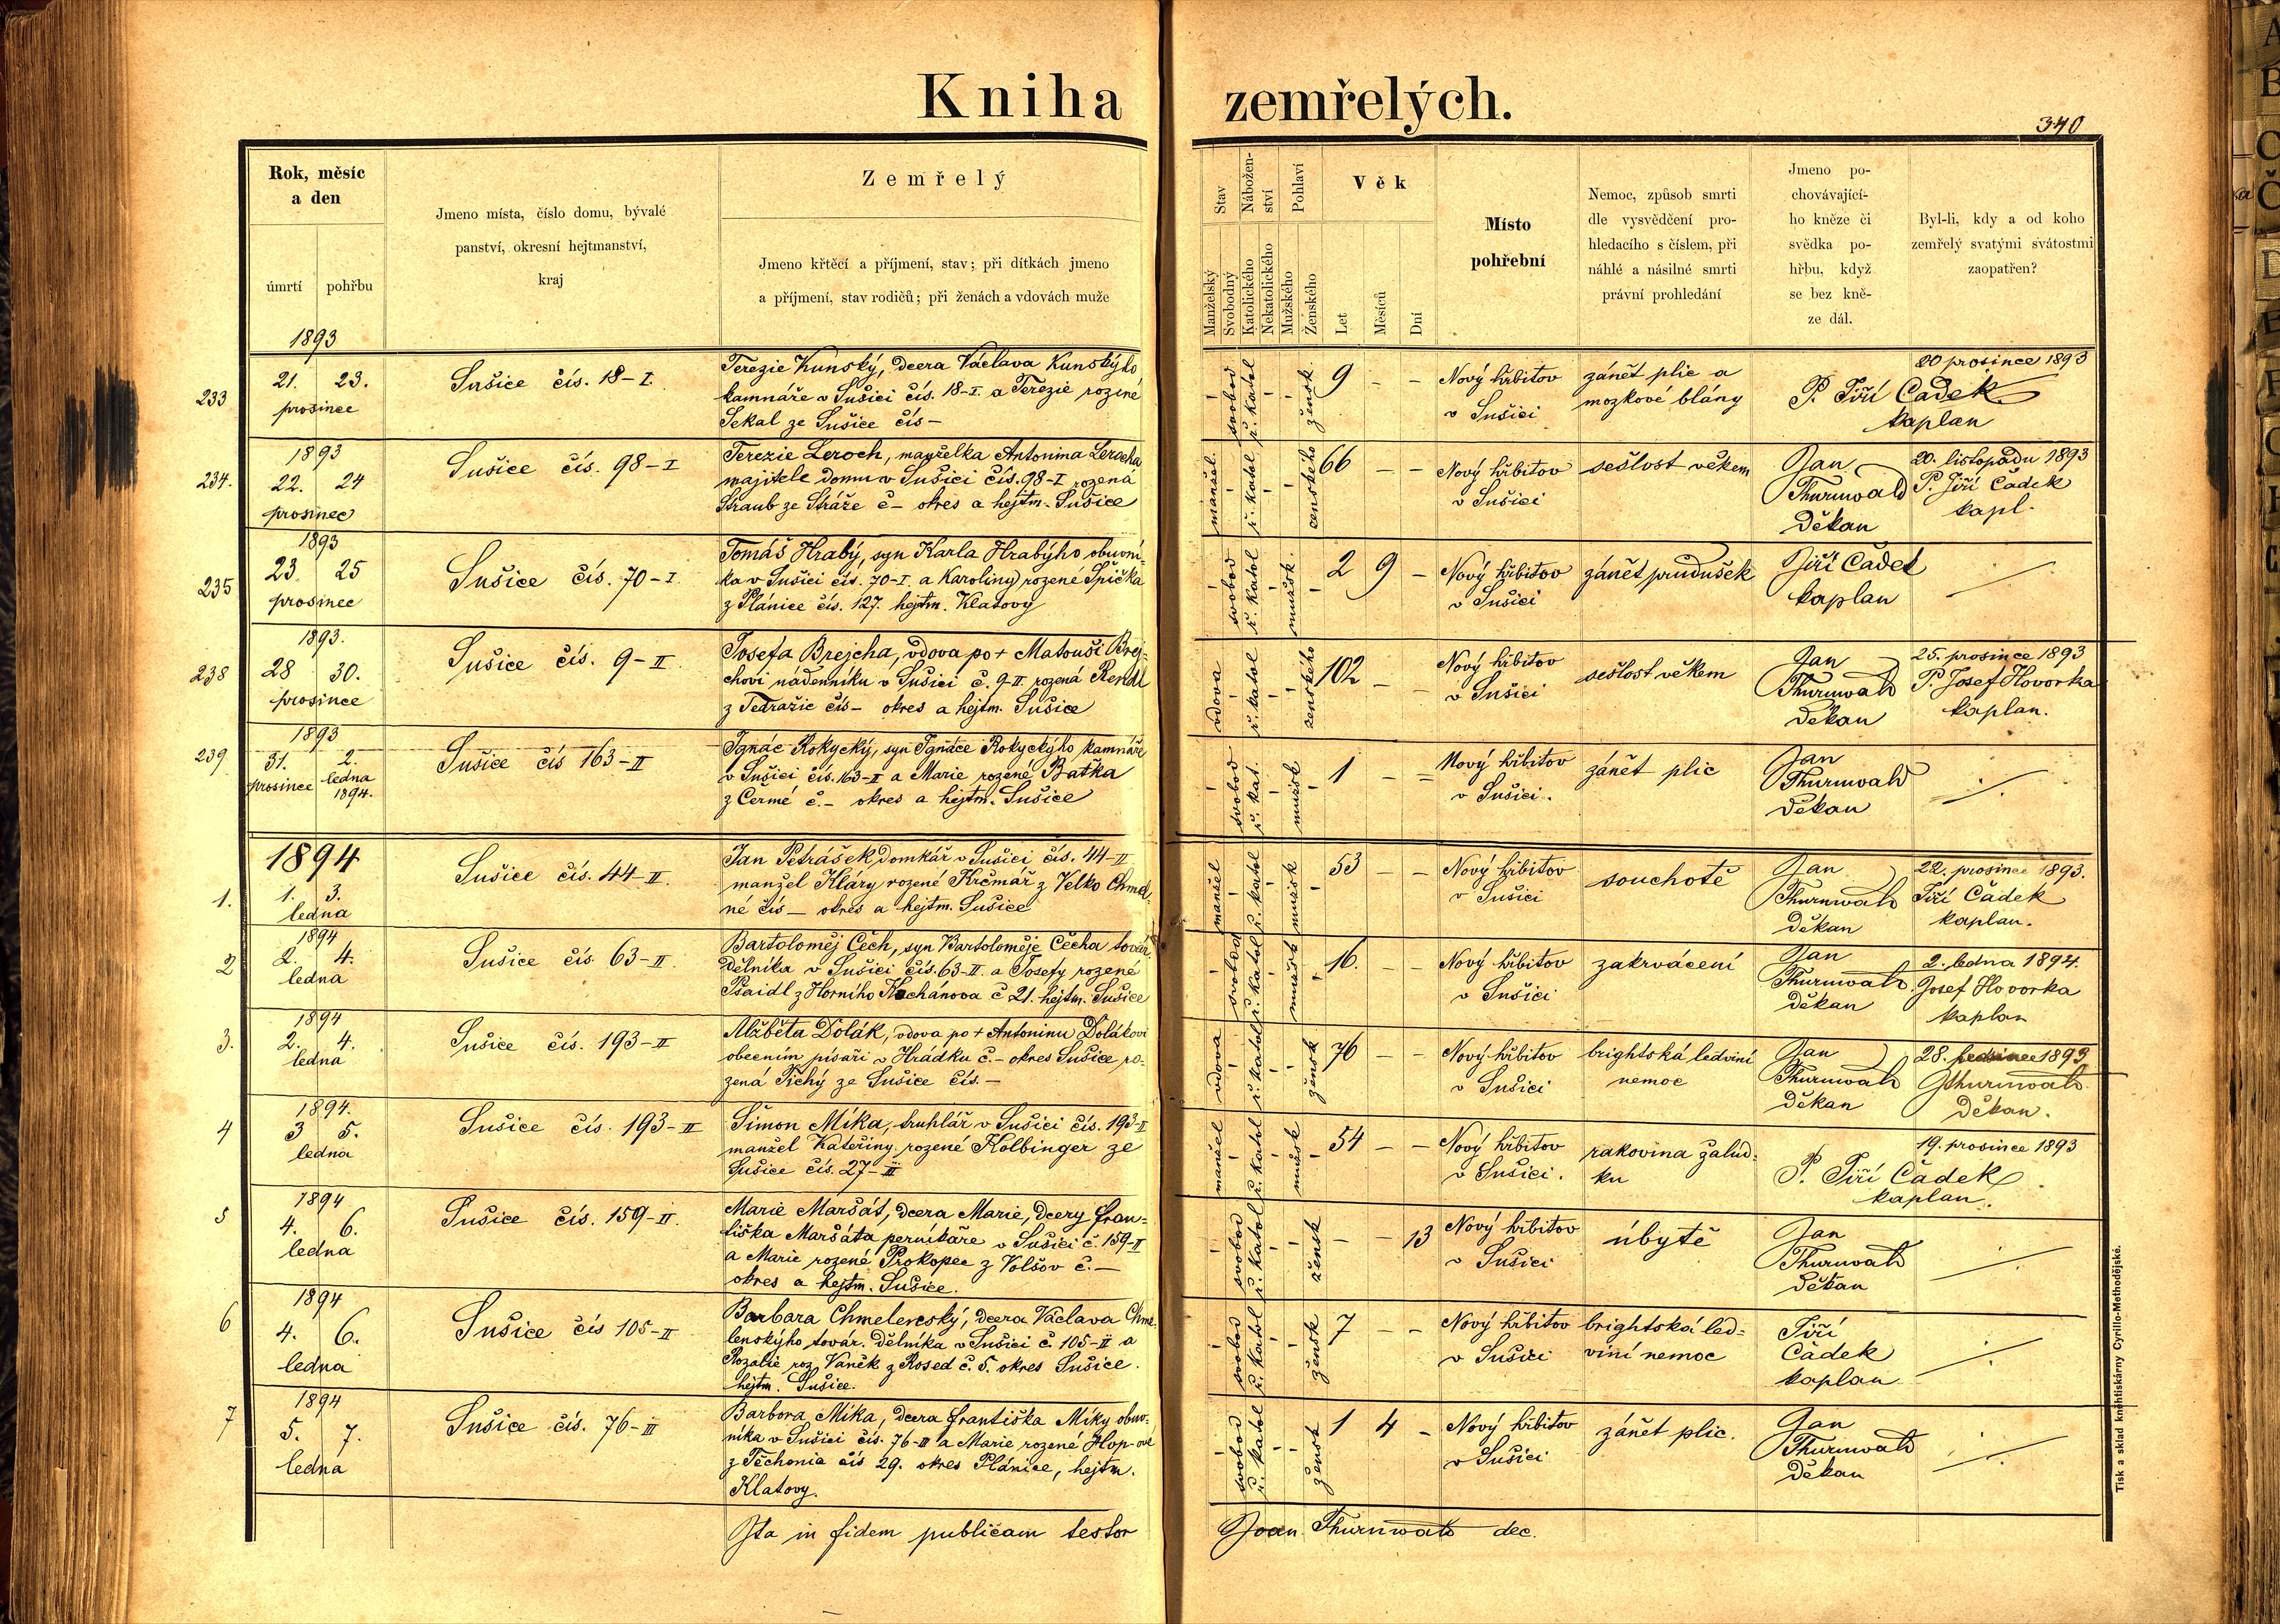 Kniha zemřelých.
340
Rok, měsíc
a den
úmrtí
pohřbu
Jmeno místa, číslo domu, bývalé
panství, okresní hejtmanství,
kraj
Zemřelý
Jmeno křtěcí a příjmení, stav; při dítkách jmeno
a příjmení, stav rodičů; při ženách a vdovách muže
Stav
Nábožen-
ství
Pohlaví
Manželský
Svobodný
Katolického
Nekatolického
Mužského
Ženského
Věk
Let
Měsíců
Dní
Místo
pohřební
Nemoc, způsob smrti
dle vysvědčení pro-
hledacího s číslem, při
náhlé a násilné smrti
právní prohledání
Jmeno po-
chovávající-
ho kněze či
svědka po-
hřbu, když
se bez kně-
ze dál.
Byl-li, kdy a od koho
zemřelý svatými svátostmi
zaopatřen?
1893
233
21. 23.
prosince
Sušice čís. 18-I.
Terezie Kunský, dcera Václava Kunskýho
kamnáře v Sušici čís. 18-I. a Terezie rozené
Sekal ze Sušice čís -
svobod
ř. katol
žensk
9 - -
Nový hřbitov
v Sušici
zánět plic a
mozkové blány
20 prosince 1893
P. Jiří Čadek
kaplan
1893
234.
22. 24
prosinec
Sušice čís. 98-I
Terezie Leroch, manželka Antonína Lerocha
majitele domu v Sušici čís. 98-I rozená
Straub ze Stráže č - okres a hejtm. Sušice
manžel.
ř. katol
ženského
66 - -
Nový hřbitov
v Sušici
sešlost věkem
Jan
Thurnwald
děkan
20. listopadu 1893
P. Jiří Čadek
kapl.
1893
235
23 25
prosinec
Sušice čís. 70-I.
Tomáš Hrabý, syn Karla Hrabýho obuvní-
ka v Sušici čís. 70-I. a Karoliny rozené Špička
z Plánice čís. 127. hejtm. Klatovy
svobod
ř. katol
mužsk.
2 9 -
Nový hřbitov
v Sušici
zánět průdušek
Jiří Čadek
kaplan
1893.
238
28 30.
prosince
Sušice čís. 9-II.
Josefa Brejcha, vdova po + Matouši Brej-
chovi nádenníku v Sušici č. 9-II. rozená Rendl
z Tedražic čís - okres a hejtm. Sušice
vdova
ř. katol
ženského
102 - -
Nový hřbitov
v Sušici
sešlost věkem
Jan
Thurnwald
děkan
25. prosince 1893
P. Josef Hovorka
kaplan.
1893
239
31. 2.
prosince ledna
1894.
Sušice čís 163-II
Ignác Rokycký, syn Ignáce Rokyckýho kamnáře
v Sušici čís. 163-II a Marie rozené Baťka
z Čermé č. - okres a hejtm. Sušice
svobod
ř. kat.
mužsk
1 - -
Nový hřbitov
v Sušici.
zánět plic
Jan
Thurnwald
děkan
1894
1.
1. 3.
ledna
Sušice čís. 44-II.
Jan Petrášek, domkář v Sušici čís. 44-II
manžel Kláry rozené Krčmář z Velko Chmel-
né čís - okres a hejtm. Sušice
manžel
ř. katol
mužsk
53 - -
Nový hřbitov
v Sušici
souchotě
Jan
Thurnwald
děkan
22. prosince 1893.
Jiří Čadek
kaplan.
1894
2
2. 4.
ledna
Sušice čís 63-II.
Bartoloměj Čech, syn Bartoloměje Čecha továr.
dělníka v Sušici čís. 63-II. a Josefy rozené
Psaidl z Horního Kochánova č 21. hejtm. Sušice
svobod
ř. katol
mužsk
16. - -
Nový hřbitov
v Sušici
zakrvácení
Jan
Thurnwald
děkan
2. ledna 1894.
Josef Hovorka
kaplan
1894
3.
2. 4.
ledna
Sušice čís. 193-II
Alžběta Dolák, vdova po + Antonínu Dolákovi
obecním písaři v Hrádku č. - okres Sušice ro-
zená Tichý ze Sušice čís. -
vdova
ř. katol
žensk
76 - -
Nový hřbitov
v Sušici
brightská ledviní
nemoc
Jan
Thurnwald
děkan
28. 1893
Jthurnwald
děkan.
1894.
4
3 5.
ledna
Sušice čís. 193-II
Šimon Míka, truhlář v Sušici čís. 193-II
manžel Kateřiny rozené Kolbinger ze
Sušice čís. 27-III
manžel
ř. katol
mužsk
54 - -
Nový hřbitov
v Sušici.
rakovina žalud-
ku
19. prosince 1893
P. Jiří Čadek
kaplan.
1894
5
4. 6.
ledna
Sušice čís. 159-II.
Marie Maršát, dcera Marie, dcery Fran-
tiška Maršáta perníkáře v Sušici č. 159-II
a Marie rozené Prokopec z Volšov č. -
okres a hejtm. Sušice.
svobod
ř. katol
žensk
- - 13
Nový hřbitov
v Sušici
úbytě
Jan
Thurnwald
děkan
1894
6
4. 6.
ledna
Sušice čís 105-II
Barbara Chmelenský, dcera Václava Chme-
lenskýho továr. dělníka v Sušici č. 105-II a
Rozalie roz. Vaněk z Rosed č. 5. okres Sušice.
hejtm. Sušice.
svobod
ř. katol
žensk
7 - -
Nový hřbitov
v Sušici
brightská led-
viní nemoc
Jiří
Čadek
kaplan
1894
7
5. 7.
ledna
Sušice čís. 76-III
Barbora Míka, dcera Františka Míky obuv-
níka v Sušici čís. 76-III a Marie rozené Hop-ové
z Těchonic čís 29. okres Plánice, hejtm.
Klatovy.
svobod
ř. katol
žensk
1 4 -
Nový hřbitov
v Sušici
zánět plic.
Jan
Thurnwald
děkan
Ita in fidem publicam testor
Joan. Thurnwald dec.
Tisk a sklad knihtiskárny Cyrillo-Methodějské.